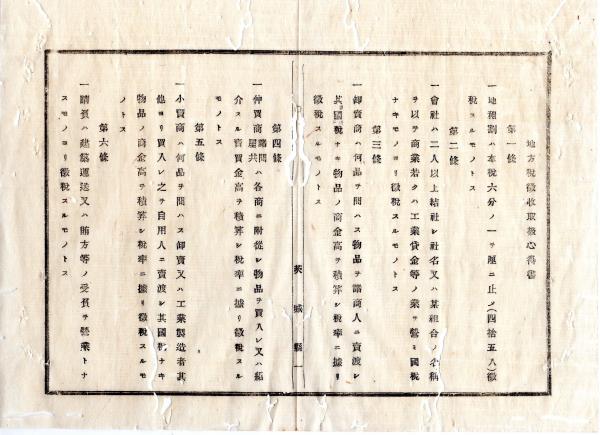 地方税徴收取扱心得書
第一條
一地租割ハ本税六分ノ一ヲ厘ニ止メ(四拾五入)徴
税スルモノトス
第二條
一會社ハ二人以上結社シ社名又ハ某組合ノ名稱
ヲ以テ商業若クハ工業貸金等ノ業ヲ營ミ國税
ナキモノヨリ徴税スルモノトス
第三條
一卸賣商ハ何品ヲ問ハス物品ヲ諸商人ニ賣渡シ
其國税ナキ物品ノ商金高ヲ積算シ税率ニ據リ
徴税スルモノトス
茨城縣
第四條
一仲買商 諸問屋共 ハ各商ニ附從シ物品ヲ買入レ又ハ紹
介スル賣買金高ヲ積算シ税率ニ據リ徴税スル
モノトス
第五條
一小賣商ハ何品ヲ問ハス卸賣又ハ工業製造者其
他ヨリ買入レ之ヲ自用人ニ賣渡シ其國税ナキ
物品ノ商金高ヲ積算シ税率ニ據リ徴税スルモ
ノトス
第六條
一請負ハ建築運送又ハ賄方等ノ受負ヲ營業トナ
スモノヨリ徴税スルモノトス